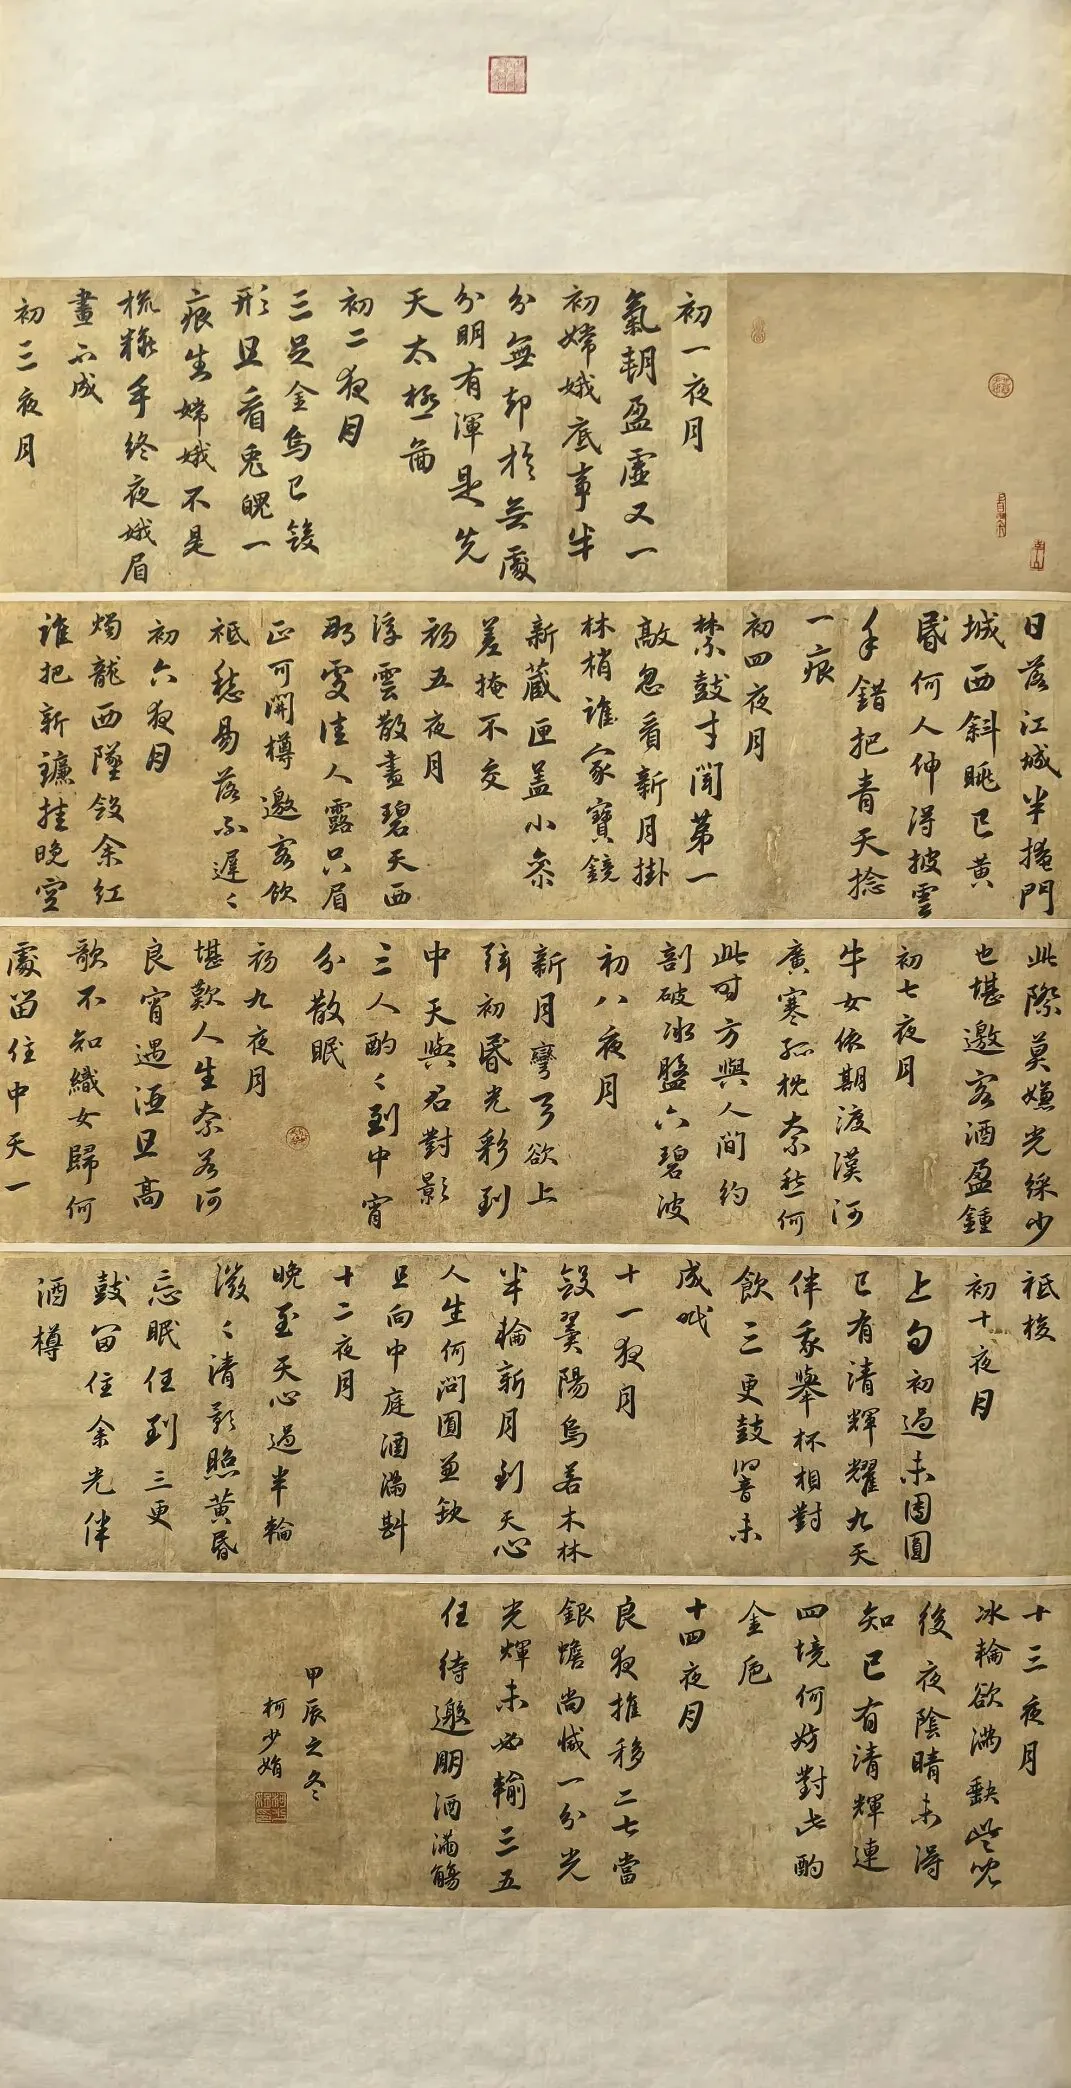 初一夜月
氣朝盈虛又一
初嫦娥底事半
分無却於無處
分明有渾是先
天太極圖
初二夜月
三足金烏已斂
形且看兎魄一
痕生嫦娥不是
梳粧手終夜娥眉
畫不成
初三夜月
日落江城半掩門
城西斜眺已黄
昏何人伸得披雲
手錯把青天捻
一痕
初四夜月
禁鼓才聞第一
敲忽看新月掛
林梢誰家寶鏡
新藏匣盖小参
差掩不交
初五夜月
浮雲散盡碧天西
那處佳人露只眉
正可開樽邀客飲
祗愁易落不遲〻
初六夜月
燭龍西墜斂余紅
誰把新鐮挂晚空
此際莫嫌光綵少
也堪邀客酒盈鍾
初七夜月
牛女依期渡漢河
廣寒孤枕奈愁何
此时方與人間約
剖破冰盤六碧波
初八夜月
新月彎弓欲上
弦初昏光彩到
中天與君對影
三人酌〻到中宵
分散眠
初九夜月
堪歎人生奈若何
良宵遇酒且高
歌不知織女歸何
處留住中天一
祗梭
初十夜月
上旬初過未團圓
已有清輝耀九天
伴我舉杯相對
飲三更鼓響未
成眠
十一夜月
斂翼陽烏若木林
半輪新月到天心
人生何問圓並缺
且向中庭酒滿斟
十二夜月
晚至天心過半輪
澂〻清影照黄昏
忘眠任到三更
鼓留住余光伴
酒樽
十三夜月
冰輪欲滿缺些兒
後夜陰晴未得
知已有清輝連
四境何妨對此酌
金卮
十四夜月
良夜推移二七當
銀蟾尚慽一分光
光輝未必輸三五
任待邀朋酒滿觴
甲辰之冬
柯少娟